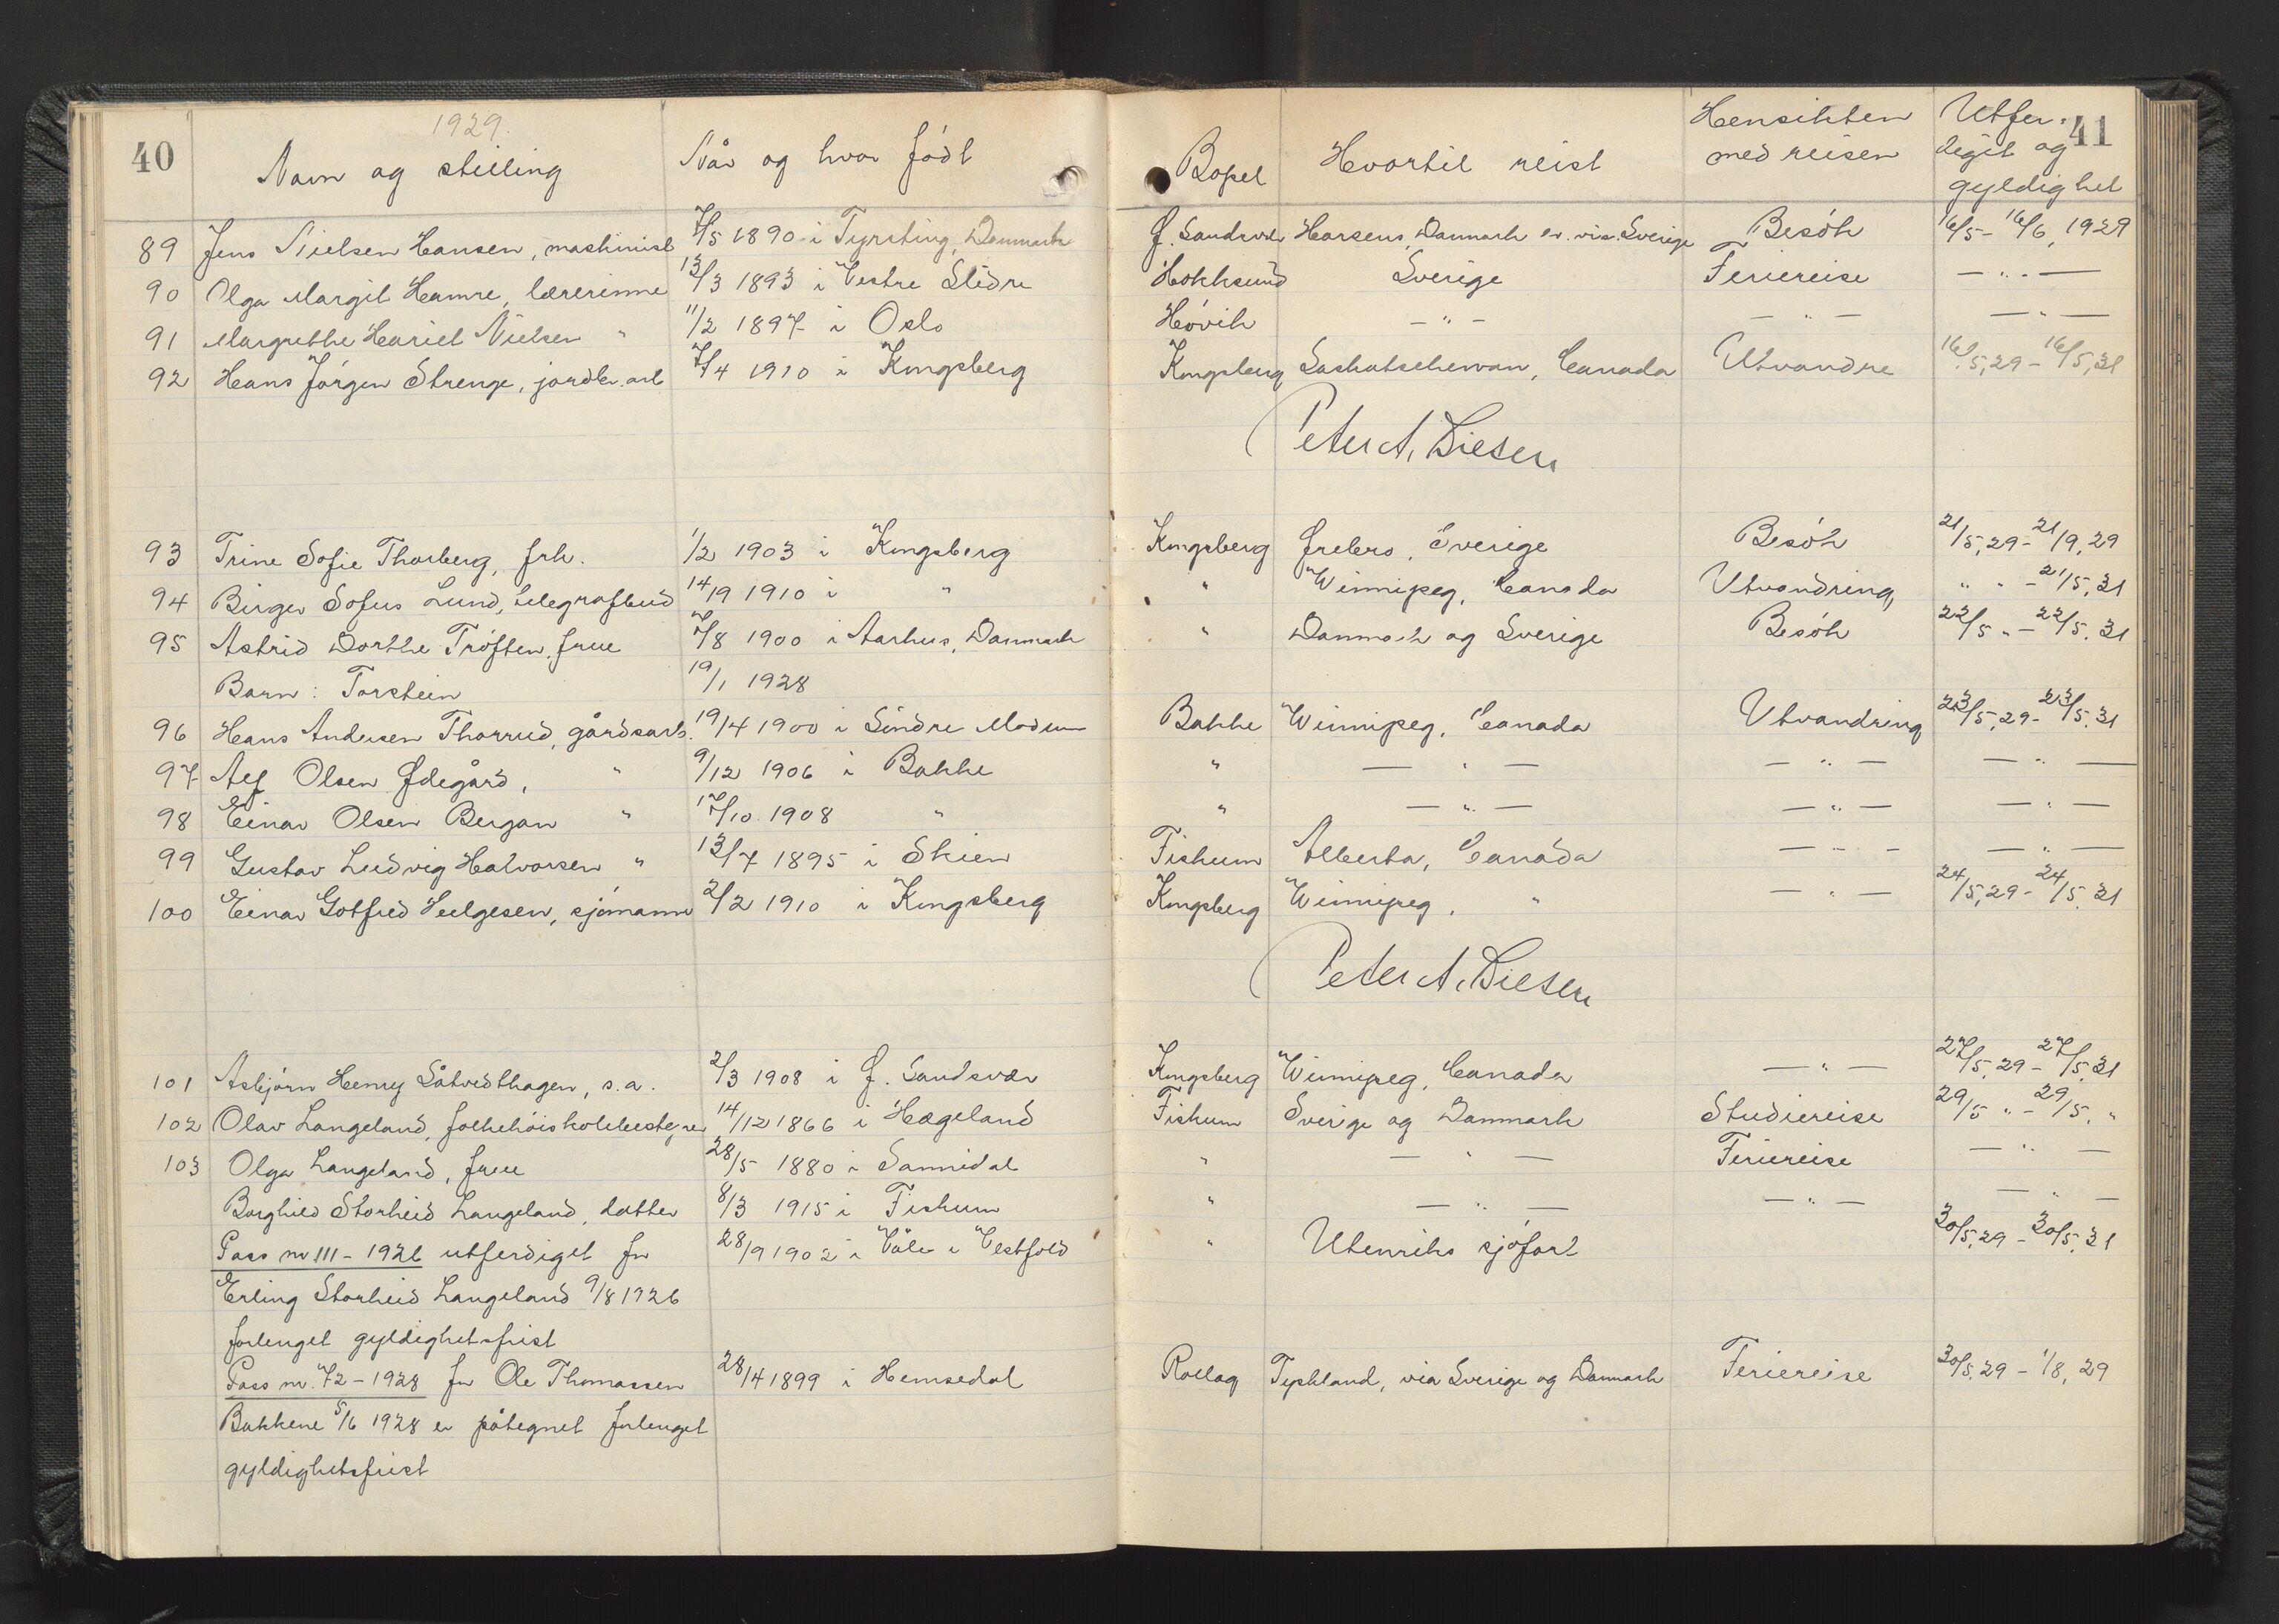 40
1929.
Navn og stilling
Når og hvor født
Bopel
Hvortil reist
Hensikten med reisen
Utfer- 41
digit og
gyldighet
89 Jens Nielsen Hansen, maskinist 7/5 1890 i Tyrsting, Danmark Ø. Sandsvær Horsens, Danmark ev. via. Sverige Besøk 16/5 - 16/6, 1929
90 Olga Margit Hamre, lærerinne 13/3 1893 i Vestre Slidre Hokksund Sverige Feriereise — " —
91 Margrethe Hariet Nielsen " 11/2 1897 i Oslo Høvik — " — — " — — " —
92 Hans Jørgen Strenge, jordbr. arb 7/4 1910 i Kongsberg Kongsberg Saskatschewan, Canada Utvandre 16/5, 29 - 16/5, 31
Peter A. Diesen
93 Trine Sofie Thorberg, frk. 1/2 1903 i Kongsberg Kongsberg Ørebro, Sverige Besøk 21/5, 29 - 21/9, 29
94 Birger Sofus Lund, telegrafbud 14/9 1910 i " " Winnipeg, Canada Utvandring " " - 21/5, 31
95 Astrid Dorthe Trøften, frue 7/8 1900 i Aarhus, Danmark " Danmark og Sverige Besøk 22/5 " - 22/5, 31
Barn: Torstein 19/1 1928
96 Hans Andersen Thorrud, gårdsarb. 19/4 1900 i Søndre Modum Bakke Winnipeg, Canada Utvandring 23/5, 29 - 23/5, 31
97 Alf Olsen Ødegård, " 9/12 1906 i Bakke " — " — — " — — " —
98 Einar Olsen Bergan " 17/10 1908 " " — " — — " — — " —
99 Gustav Ludvig Halvorsen " 13/7 1895 i Skien Fiskum Alberta, Canada — " — — " —
100 Einar Gotfred Helgesen, sjømann 2/2 1910 i Kongsberg Kongsberg Winnipeg, " — " — 24/5, 29 - 24/5, 31
Peter A. Diesen
101 Asbjørn Henry Såtvedthagen, s.a. 2/3 1908 i Ø. Sandsvær Kongsberg Winnipeg, Canada — " — 27/5, 29 - 27/5, 31
102 Olav Langeland, folkehøiskolebestyrer 14/12 1866 i Hægeland Fiskum Sverige og Danmark Studiereise 29/5 " - 29/5, "
103 Olga Langeland, frue 28/5 1880 i Sannidal " — " — Feriereise — " —
Borghild Storheid Langeland, datter 8/3 1915 i Fiskum " — " — — " — — " —
Pass nr 111 - 1926 utferdiget for 28/9 1902 i Våle i Vestfold " Utenriks sjøfart 30/5, 29 - 30/5, 31
Erling Storheid Langeland 9/8 1926
forlenget gyldighetsfrist
Pass nr. 72 - 1928 for Ole Thomassen 28/4 1899 i Hemsedal Rollag Tyskland, via Sverige og Danmark Feriereise 30/5, 29 - 1/8, 29
Bakkene 5/6 1928 er påtegnet forlenget
gyldighetsfrist